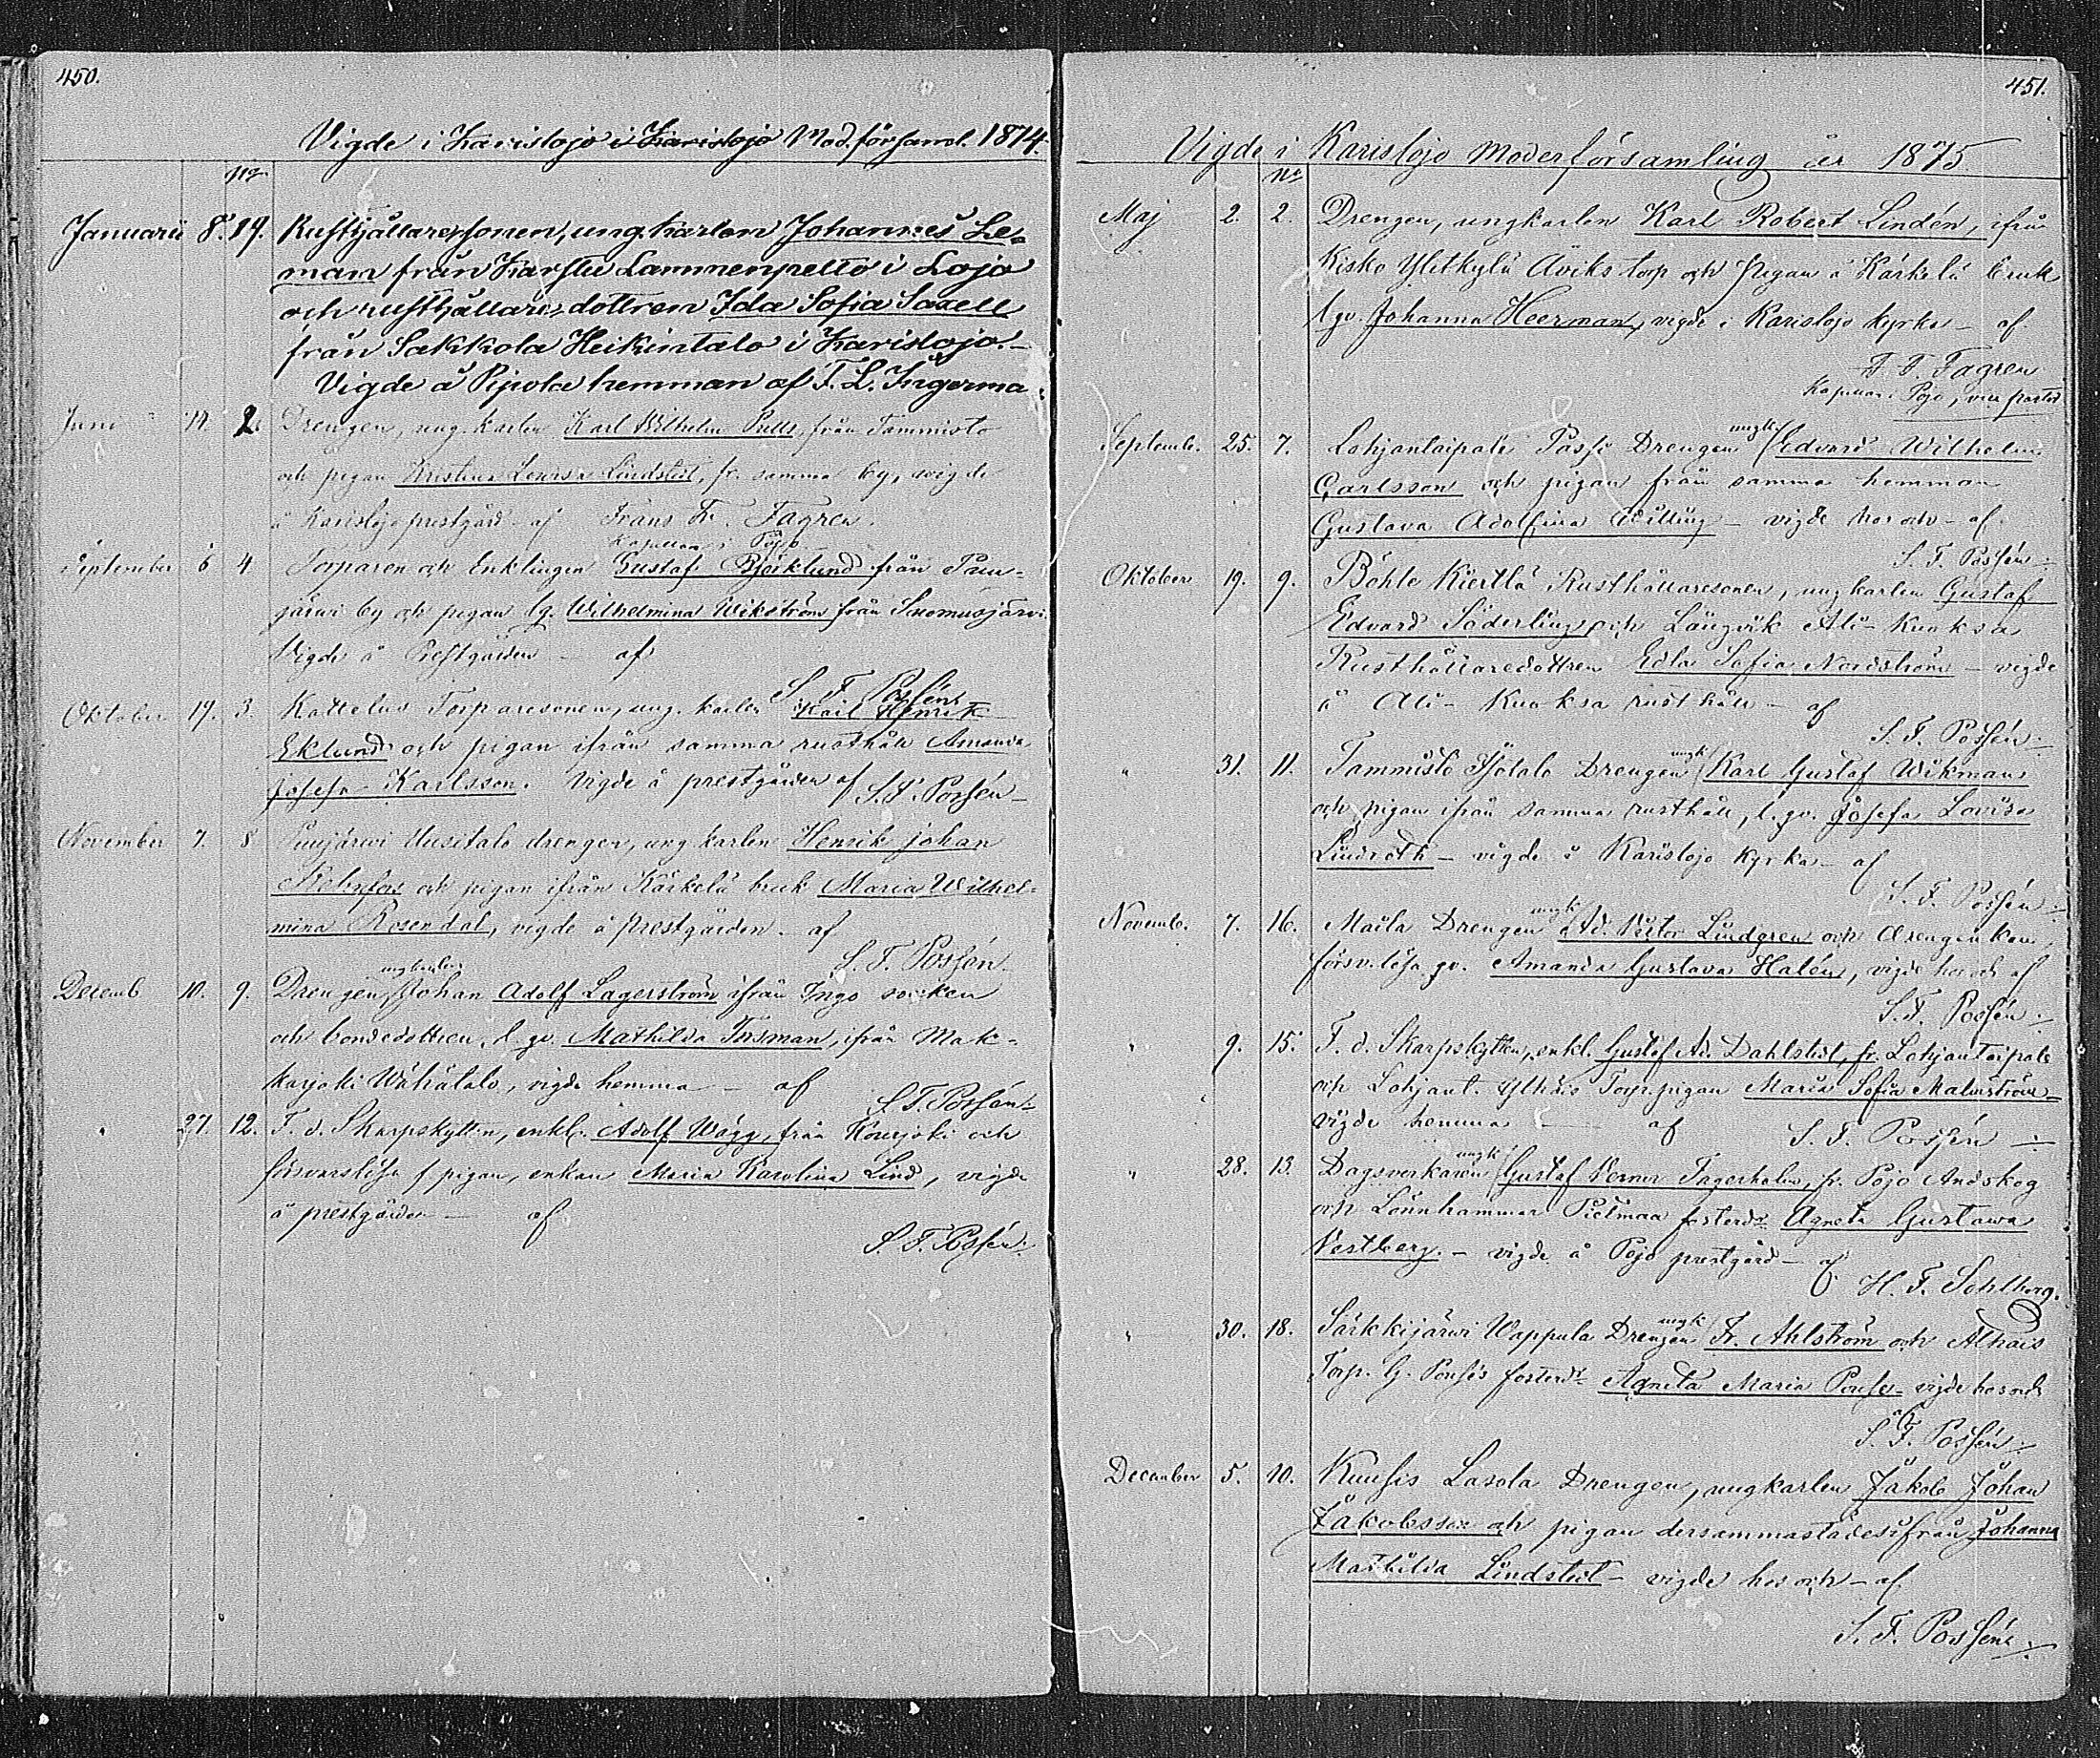 450.
Vigde i Karislojo i Karislojo Mod.församl. 1874.
No
Januarii 8. 19. Rusthållaresonen, ungkarlen Johannes Le=
man från Karstu Lammenpelto i Lojo
och rusthållare,dottren Ida Sofia Saxell
från Sakkola Heikintalo i Karislojo. –
Vigde å Pipola hemman af F. L. Ingerma.
Juni 14. 2. Drengen, ung.karlen Karl Wilhelm Pulli, från Tammisto
och pigan Kristina Lovisa Lindstedt, fr. samma by, wigde
å Karislojo prestgård – af Frans Fr. Fagren.
Kapellan i Pojo
September 6 4. Torparen och Enklingen Gustaf Björklund från Pau=
järwi by och pigan lg. Wilhelmina Wikström från Suomusjärwi.
Vigde å Prestgården – af
S. F. Possén
Oktober 19. 3. Kattelus Torparesonen, ung.karlen Karl Henrik
Eklund och pigan ifrån samma rusthåll Amanda
Josefa Karlsson. Vigde å prestgården af S. F. Possén –
November 7. 8. Puujärwi Uusitalo drengen, ungkarlen Henrik Johan
och pigan ifrån Kärkelä bruk Maria Wilhel=
mina Rosendal, vigde å prestgården – af
S. F. Possén.
Decemb. 10. 9. Drengen, ungkarlen Johan Adolf Lagerström ifrån Ingo socken
och bondedottren, l. gv. Mathilda Forsman, ifrån Mak=
karjoki Wähätalo, vigde hemma – af
S. F. Possén.
" 27. 12. F. d. Skarpskytten, enkl. Adolf Wägg, från Kourjoki och
försvarslösa pigan, enkan Maria Karolina Lind, vigde
å prestgården – af
S. F. Possén.
451.
Vigde i Karislojo Moderförsamling år 1875.
No
Maj 2. 2. Drengen, ungkarlen Karl Robert Lindén, ifrån
Kisko Ylitkylä Åviks torp och pigan å Kärkelä bruk
l gv. Johanna Heerman, vigde i Karislojo kyrka – af
F. F. Fagren
Kapellan i Pojo, vice pastor
Septembr. 25. 7. Lohjantaipale Passi Drengen ungk. Edvard Wilhelm
Carlsson och pigan från samma hemman
Gustava Adolfina Willing – vigde hos och – af
S. F. Possén
Oktober 19. 9. Böhle Kiertla Rusthållaresonen, ungkarlen Gustaf
Edvard Söderling och Långvik Ali-Kuoksa
Rusthållaredottren Edla Sofia Nordström – vigde
å Ali-Kuoksa rusthåll – af
S. F. Possén
" 31. 11. Tammisto Isotalo Drengen ungk. Karl Gustaf Wikman
och pigan ifrån samma rusthåll, l. gv. Josefa Lovisa
Lindroth – vigde i Karislojo kyrka – af
S. F. Possén
Novemb. 7. 16. Maila Drengen ungk. Ad. Victor Lindgren och
försv.lösa gv. Amanda Gustava Halén, vigde hos och af
S. F. Possén
" 9. 15. F. d. Skarpskytten, enkl. Gustaf Ad. Dahlstedt, fr. Lohjantaipale
och Lohjant. Torp.pigan Maria Sofia Malmström –
vigde hemma – af S. F. Possén
" 28. 13. Dagsverkaren ungk. Gustaf Verner Fagerholm, fr. Pojo Andskog
och Lönnhammar Pietmaa fosterdr Agneta Gustawa
Vestberg. – vigde å Pojo prestgård – af
H. F. Sohlberg.
" 30. 18. Särkkijärwi Wappula Drengen ungk. Fr. Ahlström och
Torp. G. fosterdr Agneta Maria – vigde hos och
af
S. F. Possén
December 5. 10. Kuusis Lasola Drengen, ungkarlen Jakob Johan
Jakobsson och pigan dersammastädesifrån Johanna
Mathilda Lindstedt – vigde hos och – af
S. F. Possén